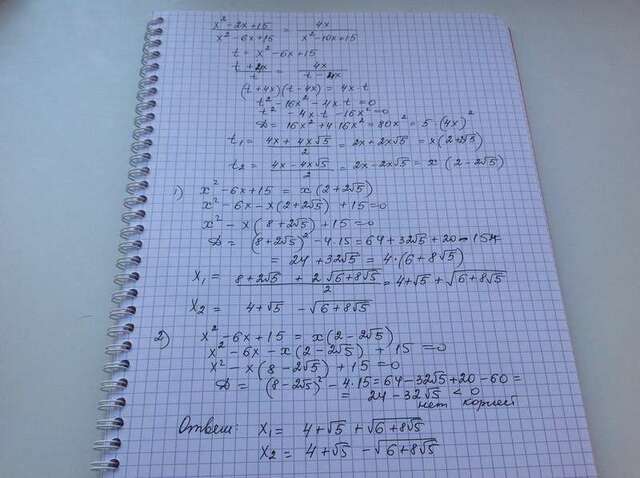 (x² - 2x + 15)/(x² - 6x + 15) = 4x/(x² - 10x + 15)
t = x² - 6x + 15
(t + 4x)/t = 4x/(t - 4x)
(t + 4x)(t - 4x) = 4x · t
t² - 16x² - 4x · t = 0
t² - 4x · t - 16x² = 0
D = 16x² + 4·16x² = 80x² = 5 · (4x)²
t₁ = (4x + 4x√5)/2 = 2x + 2x√5 = x(2 + 2√5)
t₂ = (4x - 4x√5)/2 = 2x - 2x√5 = x(2 - 2√5)
1) x² - 6x + 15 = x(2 + 2√5)
x² - 6x - x(2 + 2√5) + 15 = 0
x² - x(8 + 2√5) + 15 = 0
D = (8 + 2√5)² - 4·15 = 64 + 32√5 + 20 - 15·4
= 24 + 32√5 = 4·(6 + 8√5)
x₁ = (8 + 2√5 + 2√(6 + 8√5))/2 = 4 + √5 + √(6 + 8√5)
x₂ = 4 + √5 - √(6 + 8√5)
2) x² - 6x + 15 = x(2 - 2√5)
x² - 6x - x(2 - 2√5) + 15 = 0
x² - x(8 - 2√5) + 15 = 0
D = (8 - 2√5)² - 4·15 = 64 - 32√5 + 20 - 60 =
= 24 - 32√5 < 0
нет корней
Ответ: x₁ = 4 + √5 + √(6 + 8√5)
x₂ = 4 + √5 - √(6 + 8√5)